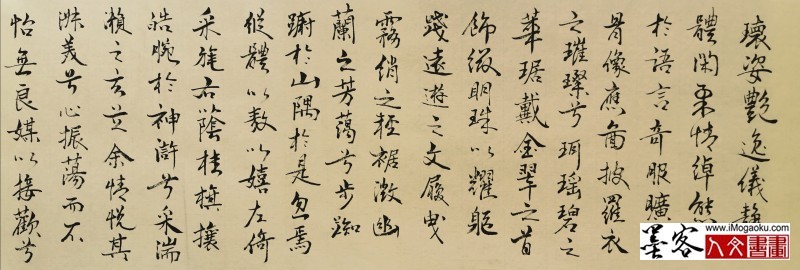 瓌姿艷逸儀靜
體閑柔情綽態
於語言奇服曠
骨像應圖披羅衣
之璀璨兮珥瑤碧之
華琚戴金翠之首
飾綴明珠以耀軀
踐遠遊之文履曳
霧綃之輕裾微幽
蘭之芳藹兮步踟
躕於山隅於是忽焉
縱體以敖以嬉左倚
采旄右蔭桂旗攘
皓腕於神滸兮采湍
瀨之玄芝余情悅其
淑美兮心振蕩而不
怡無良媒以接歡兮
墨客
www.iMogaoku.com
人文書畫